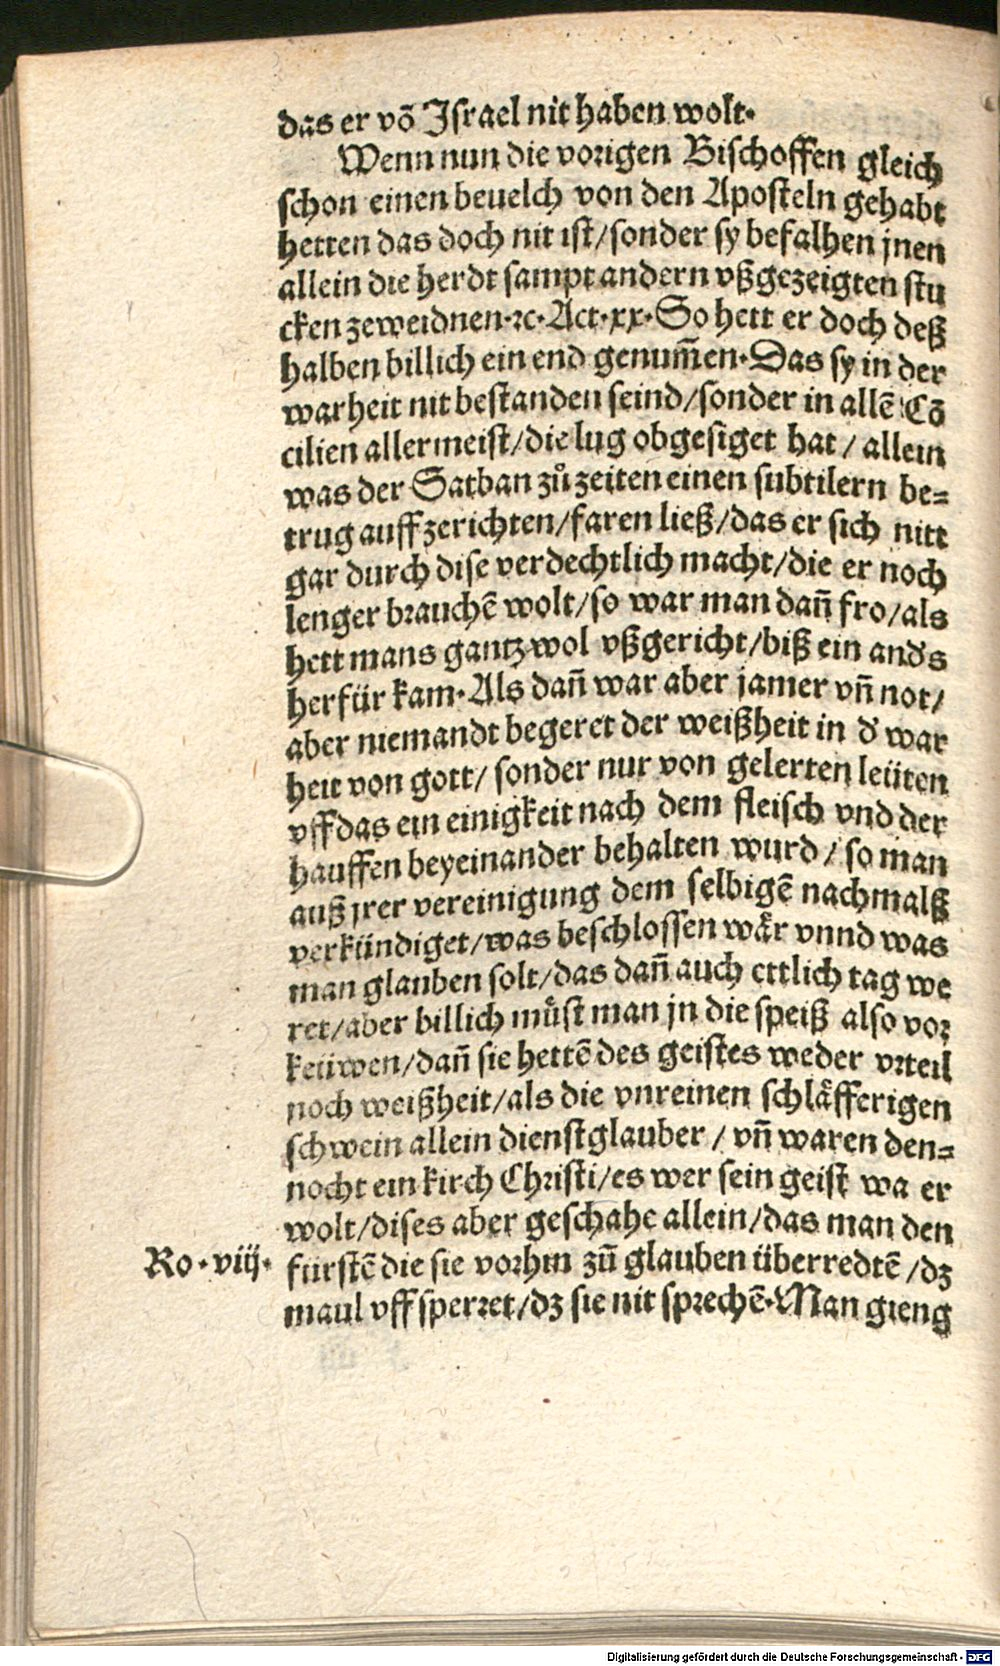 das er võ Jsrael nit haben wolt.
Wenn nun die vorigen Bischoffen gleich
schon einen beuelch von den Aposteln gehabt
hetten das doch nit ist/sonder sy befalhen jnen
allein die herdt sampt andern vßgezeigten stu
cken zeweidnen.ꝛc.Act.xx.So hett er doch deß
halben billich ein end genum̃en.Das sy in der
warheit nit bestanden seind/sonder in allẽ Cõ
cilien allermeist/die lug obgesiget hat/allein
was der Sathan zů zeiten einen subtilern be⸗
trug auffzerichten/faren ließ/das er sich nitt
gar durch dise verdechtlich macht/die er noch
lenger brauchẽ wolt/so war man dañ fro/als
hett mans gantz wol vßgericht/biß ein and's
herfür kam.Als dañ war aber jamer vñ not/
aber niemandt begeret der weißheit in d' war
heit von gott/sonder nur von gelerten leüten
vffdas ein einigkeit nach dem fleisch vnd der
hauffen beyeinander behalten wurd/so man
auß jrer vereinigung dem selbigẽ nachmalß
verkündiget/was beschlossen wår vnnd was
man glauben solt/das dañ auch ettlich tag we
ret/aber billich můst man jn die speiß also vor
keüwen/dañ sie hettẽ des geistes weder vrteil
noch weißheit/als die vnreinen schläfferigen
schwein allein dienstglauber/vñ waren den⸗
nocht ein kirch Christi/es wer sein geist wa er
wolt/dises aber geschahe allein/das man den
Ro.viij. fürstẽ die sie vorhin zů glauben überredtẽ/dz
maul vffsperret/dz sie nit sprechẽ.Man gieng
Digitalisierung gefördert durch die Deutsche Forschungsgemeinschaft - DFG